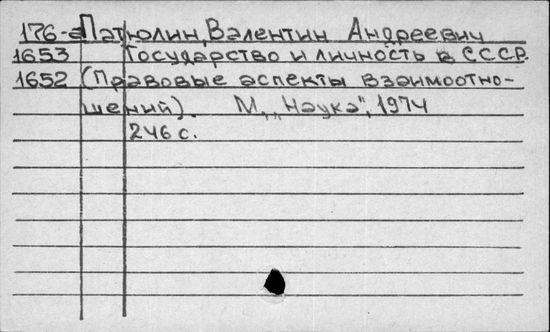 176-а Патюлин, Валентин Андреевич
1653 Государство и личность в СССР.
1652 (Правовые аспекты взаимоотно-
шений). М., „Наука", 1974
246 с.